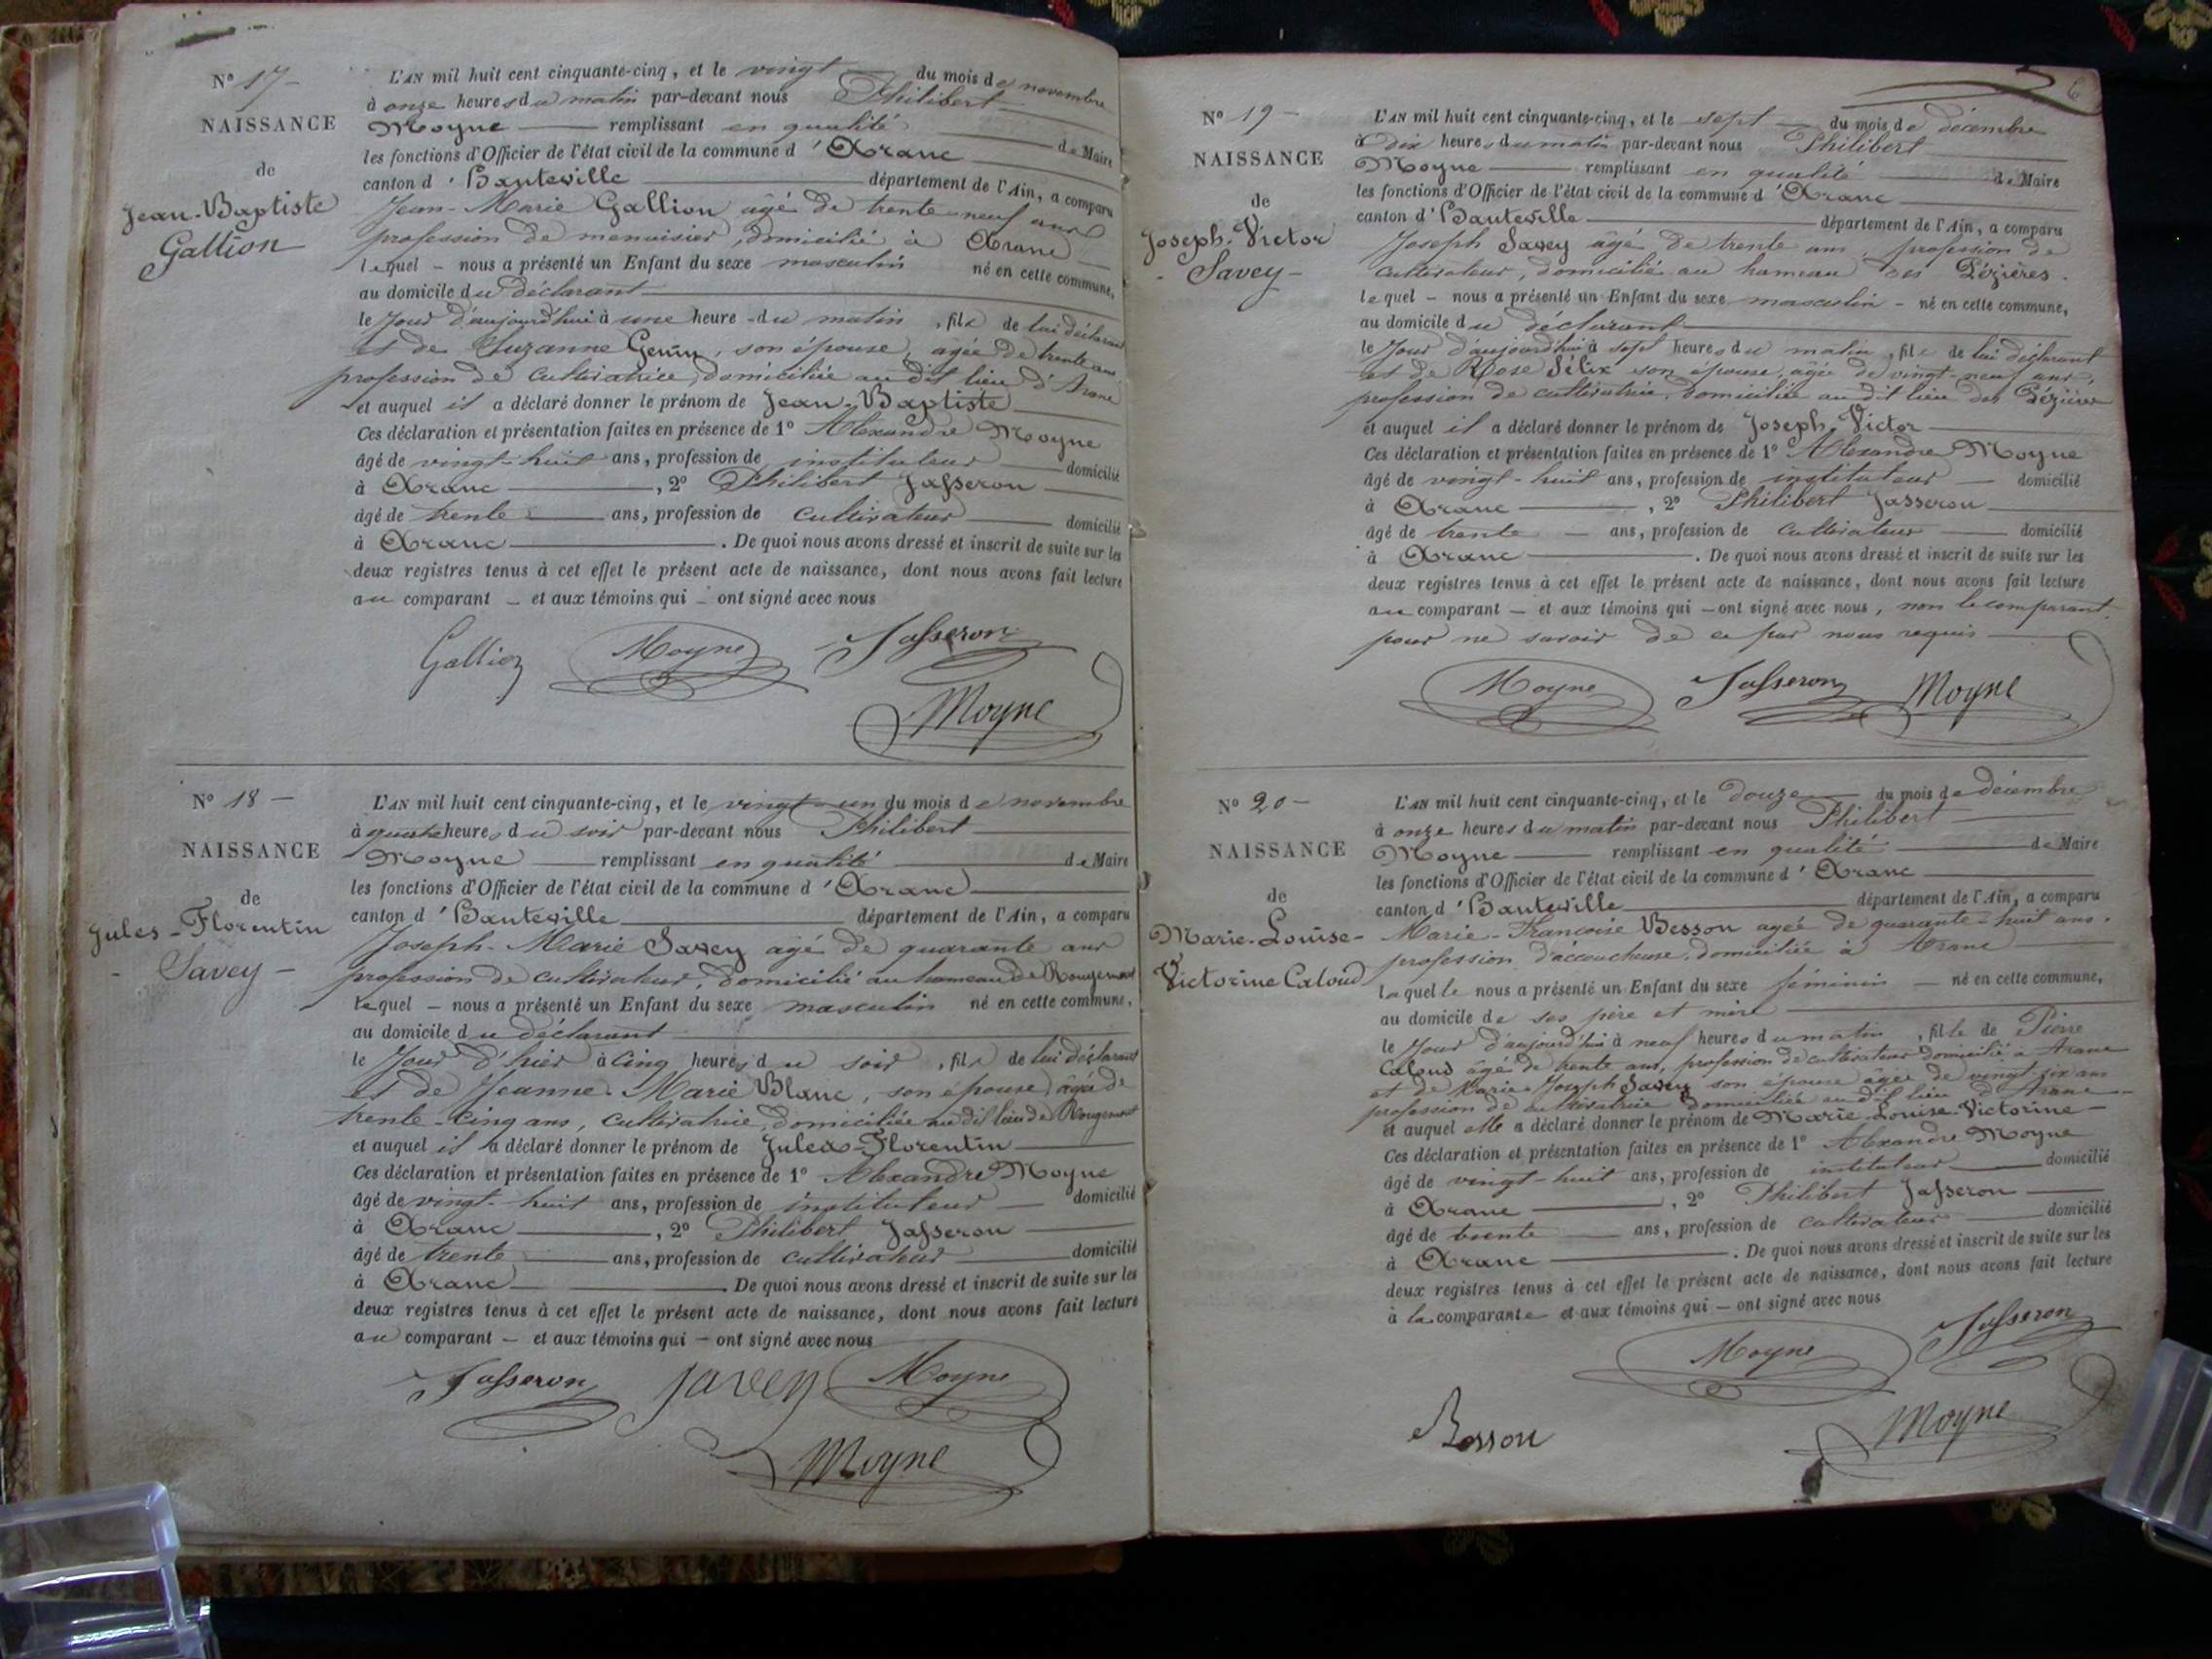 N° 17 –
NAISSANCE
de
Jean-Baptiste
Gallion
L'AN mil huit cent cinquante-cinq, et le vingt du mois de novembre
à onze heures du matin par-devant nous Philibert
Moyne remplissant en qualité de Maire
les fonctions d'Officier de l'état civil de la commune d'Aranc
canton d'Hauteville département de l'Ain, a comparu
Jean-Marie Gallion âgé de trente-neuf ans
profession de menuisier, domicilié à Aranc
lequel – nous a présenté un Enfant du sexe masculin né en cette commune,
au domicile du déclarant
le jour d'aujourd'hui à une heure du matin, fils de lui déclarant
et de Suzanne Genin, son épouse, agée de trente ans
profession de cultivatrice, domiciliée au dit lieu d'Aranc
et auquel il a déclaré donner le prénom de Jean-Baptiste
Ces déclaration et présentation faites en présence de 1° Alexandre Moyne
âgé de vingt-huit ans, profession de instituteur domicilié
à Aranc, 2° Philibert Jasseron
âgé de trente ans, profession de cultivateur domicilié
à Aranc. De quoi nous avons dressé et inscrit de suite sur les
deux registres tenus à cet effet le présent acte de naissance, dont nous avons fait lecture
au comparant – et aux témoins qui – ont signé avec nous
Gallion Moyne Jasseron
Moyne
N° 18 –
NAISSANCE
de
Jules-Florentin
– Savey –
L'AN mil huit cent cinquante-cinq, et le vingt-un du mois de novembre
à quatre heures du soir par-devant nous Philibert
Moyne remplissant en qualité de Maire
les fonctions d'Officier de l'état civil de la commune d'Aranc
canton d'Hauteville département de l'Ain, a comparu
Joseph-Marie Savey agé de quarante ans
profession de cultivateur, domicilié au hameau de Rougemont
lequel – nous a présenté un Enfant du sexe masculin né en cette commune,
au domicile du déclarant
le jour d'hier à cinq heures du soir, fils de lui déclarant
et de Jeanne-Marie Blanc, son épouse, âgée de
trente-cinq ans, cultivatrice, domiciliée au dit lieu de Rougemont
et auquel il a déclaré donner le prénom de Jules-Florentin
Ces déclaration et présentation faites en présence de 1° Alexandre Moyne
âgé de vingt-huit ans, profession de instituteur – domicilié
à Aranc, 2° Philibert Jasseron
âgé de trente ans, profession de cultivateur domicilié
à Aranc. De quoi nous avons dressé et inscrit de suite sur les
deux registres tenus à cet effet le présent acte de naissance, dont nous avons fait lecture
au comparant – et aux témoins qui – ont signé avec nous
Jasseron Savey Moyne
Moyne
6
N° 19 –
NAISSANCE
de
Joseph-Victor
– Savey –
L'AN mil huit cent cinquante-cinq, et le sept du mois de décembre
à dix heures du matin par-devant nous Philibert
Moyne remplissant en qualité de Maire
les fonctions d'Officier de l'état civil de la commune d'Aranc
canton d'Hauteville département de l'Ain, a comparu
Joseph Savey âgé de trente ans, profession de
cultivateur, domicilié au hameau des Pézières
lequel – nous a présenté un Enfant du sexe masculin – né en cette commune,
au domicile du déclarant
le jour d'aujourd'hui à sept heures du matin, fils de lui déclarant
et de Rose Félix son épouse, agée de vingt-neuf ans,
profession de cultivatrice, domiciliée au dit lieu des Pézières
et auquel il a déclaré donner le prénom de Joseph-Victor
Ces déclaration et présentation faites en présence de 1° Alexandre Moyne
âgé de vingt-huit ans, profession de instituteur – domicilié
à Aranc, 2° Philibert Jasseron
âgé de trente – ans, profession de cultivateur domicilié
à Aranc. De quoi nous avons dressé et inscrit de suite sur les
deux registres tenus à cet effet le présent acte de naissance, dont nous avons fait lecture
au comparant – et aux témoins qui – ont signé avec nous, non le comparant
pour ne savoir de ce par nous requis
Moyne Jasseron Moyne
N° 20 –
NAISSANCE
de
Marie-Louise-
Victorine Caloud
L'AN mil huit cent cinquante-cinq, et le douze du mois de décembre
à onze heures du matin par-devant nous Philibert
Moyne remplissant en qualité de Maire
les fonctions d'Officier de l'état civil de la commune d'Aranc
canton d'Hauteville département de l'Ain, a comparu
Marie-Françoise Besson agée de quarante-huit ans,
profession d'accoucheuse, domiciliée à Aranc
laquelle nous a présenté un Enfant du sexe féminin – né en cette commune,
au domicile de ses père et mère
le jour d'aujourd'hui à neuf heures du matin, fille de Pierre
Caloud âgé de trente ans, profession de cultivateur domicilié à Aranc
et de Marie-Joseph Savey son épouse âgée de vingt-six ans
profession de cultivatrice domiciliée au dit lieu d'Aranc
et auquel elle a déclaré donner le prénom de Marie-Louise-Victorine –
Ces déclaration et présentation faites en présence de 1° Alexandre Moyne
âgé de vingt-huit ans, profession de instituteur domicilié
à Aranc, 2° Philibert Jasseron
âgé de trente ans, profession de cultivateur domicilié
à Aranc. De quoi nous avons dressé et inscrit de suite sur les
deux registres tenus à cet effet le présent acte de naissance, dont nous avons fait lecture
à la comparante et aux témoins qui – ont signé avec nous
Moyne Jasseron
Besson Moyne